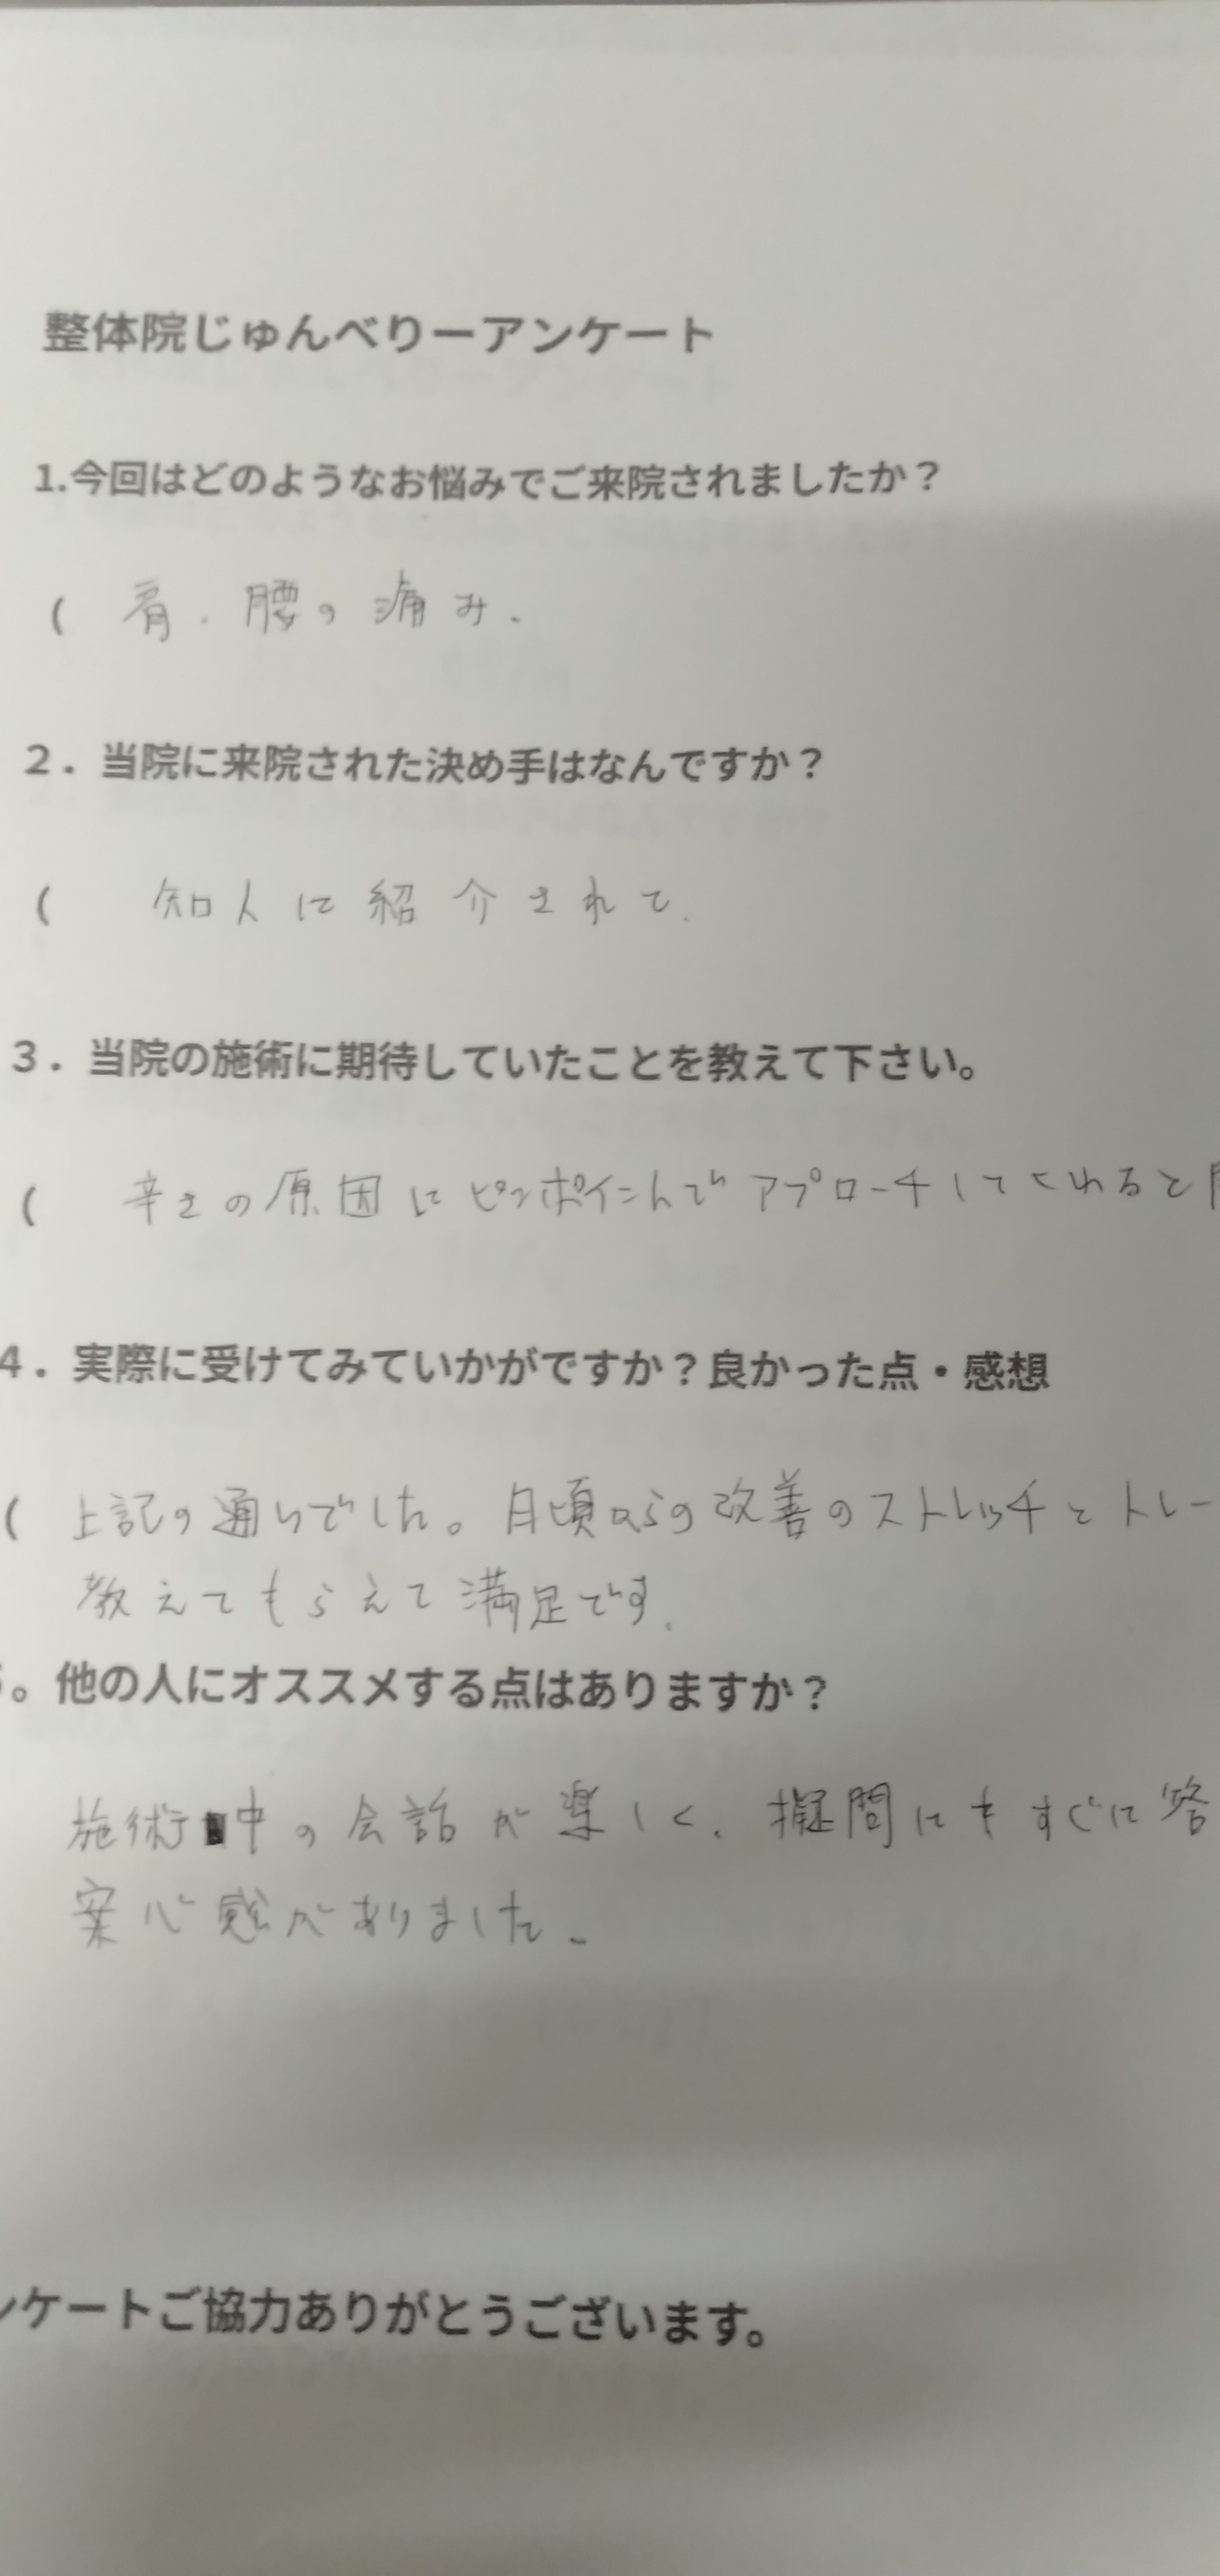 整体院じゅんべりーアンケート
1.今回はどのようなお悩みでご来院されましたか？
( 肩・腰の痛み.
２．当院に来院された決め手はなんですか？
( 知人に紹介されて.
３．当院の施術に期待していたことを教えて下さい。
( 辛さの原因にピンポイントでアプローチしてくれると
４．実際に受けてみていかがですか？良かった点・感想
( 上記の通りでした。日頃からの改善のストレッチとトレー
教えてもらえて満足です.
。他の人にオススメする点はありますか？
施術中の会話が楽しく、擬問にもすぐに答
案心感がありました.
ンケートご協力ありがとうございます。